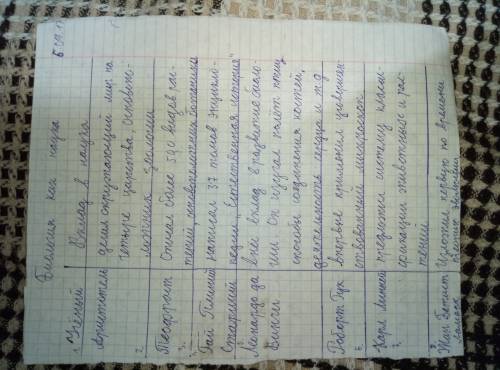 Биология как наука
Учёный Вклад в науку
Аристотель делил окружающий мир на
четыре царства, основопо-
ложник зоологии
Теофраст Описал более 500 видов рас-
тений, основоположник ботаники
Гай Плиний написал 37 томов энцикло-
Старший педии „Естественная история"
Леонардо да внёс вклад в развитие биоло-
Винчи гии Он изучал полёт птиц,
способы соединения костей,
деятельность сердца и т д
Роберт Гук впервые применил усовершен
ствованный микроскоп
Карл Линней предложил систему класси-
фикации животных и рас-
тений
Жан Батист Изложил первую по времени
Ламарк теорию эволюции